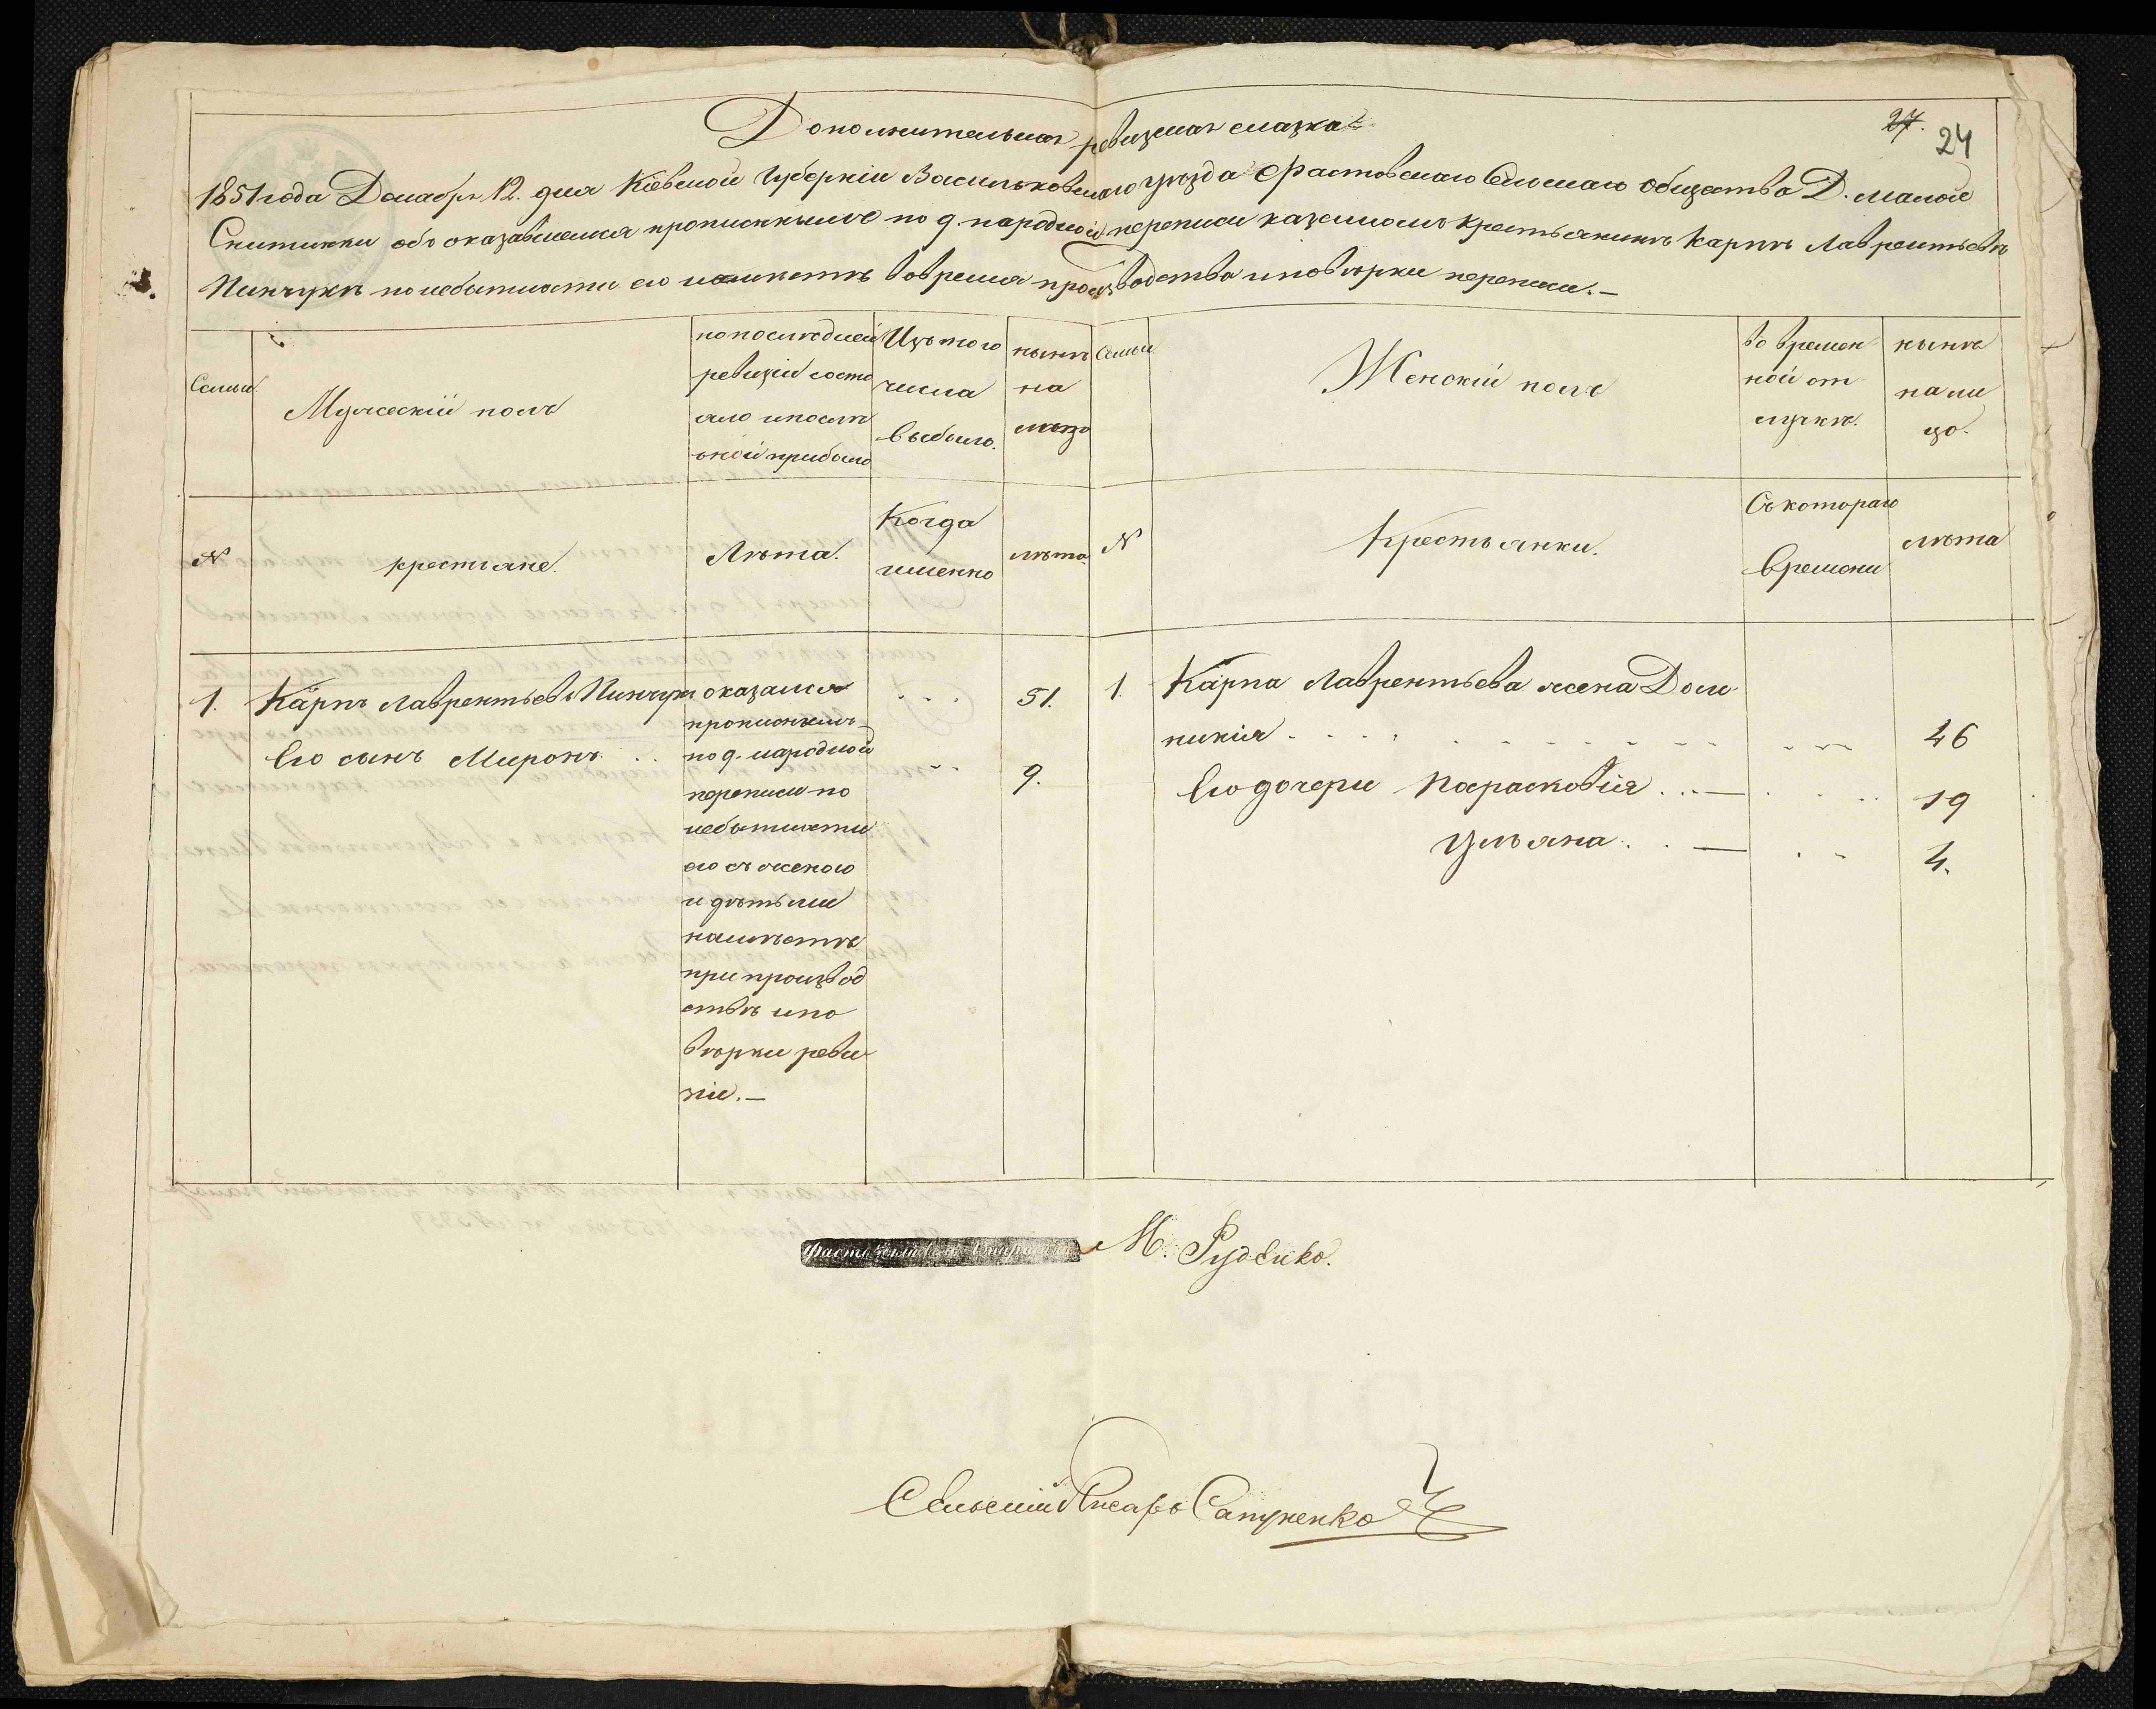 27. 24
Дополнительная ревизская сказка
1851 года Декабря 12. дня Кіевской Губерніи Васильковскаго уезда Фастовскаго Сельскаго общества Д. малой
Снитинки объ оказавшемся прописнымъ по 9. народной переписи казенномъ крестьянинѣ Карпѣ Лаврентьевѣ
Пинчукѣ по небытности его на мѣстѣ вовремя производства и повѣрки переписи.—
Семьи
Мужескій полъ
по последней
ревизіи состо
яло и послѣ
оной прибыло
Изъ того
числа
выбыло.
нынѣ
на
лицо
Семьи
Женскій полъ
во времен
ной от
лучкѣ.
нынѣ
на ли
цо.
N
крестьяне.
Лѣта.
Когда
именно
лѣта.
N
Крестьянки.
Съ котораго
времени
лѣта
1. Карпъ Лаврентьевъ Пинчукъ
Его сынъ Миронъ
оказался
прописнымъ
по 9. народной
переписи по
небытности
его съ женою
и дѣтьми
на мѣстѣ
при производ
ствѣ и по
вѣрки реви
зіи.—
51.
9.
1. Карпа Лаврентьева жена Доми
никія 46
Его дочери Парасковія 19
Ульяна 4.
М. Руденко.
Сельскій Писарь Сапуненко